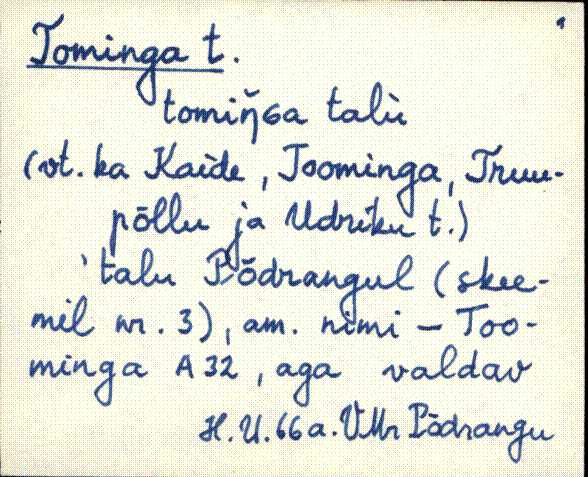 Tominga t.
tomiŋ̆ɢa talù
(vt. ka Kaide, Toominga, Truu-
põllu ja Udriku t.)
'talu Põdrangul (skee-
mil nr. 3), am. nimi – Too-
minga A 32, aga valdav
H.U. 66 a. VMr Põdrangu